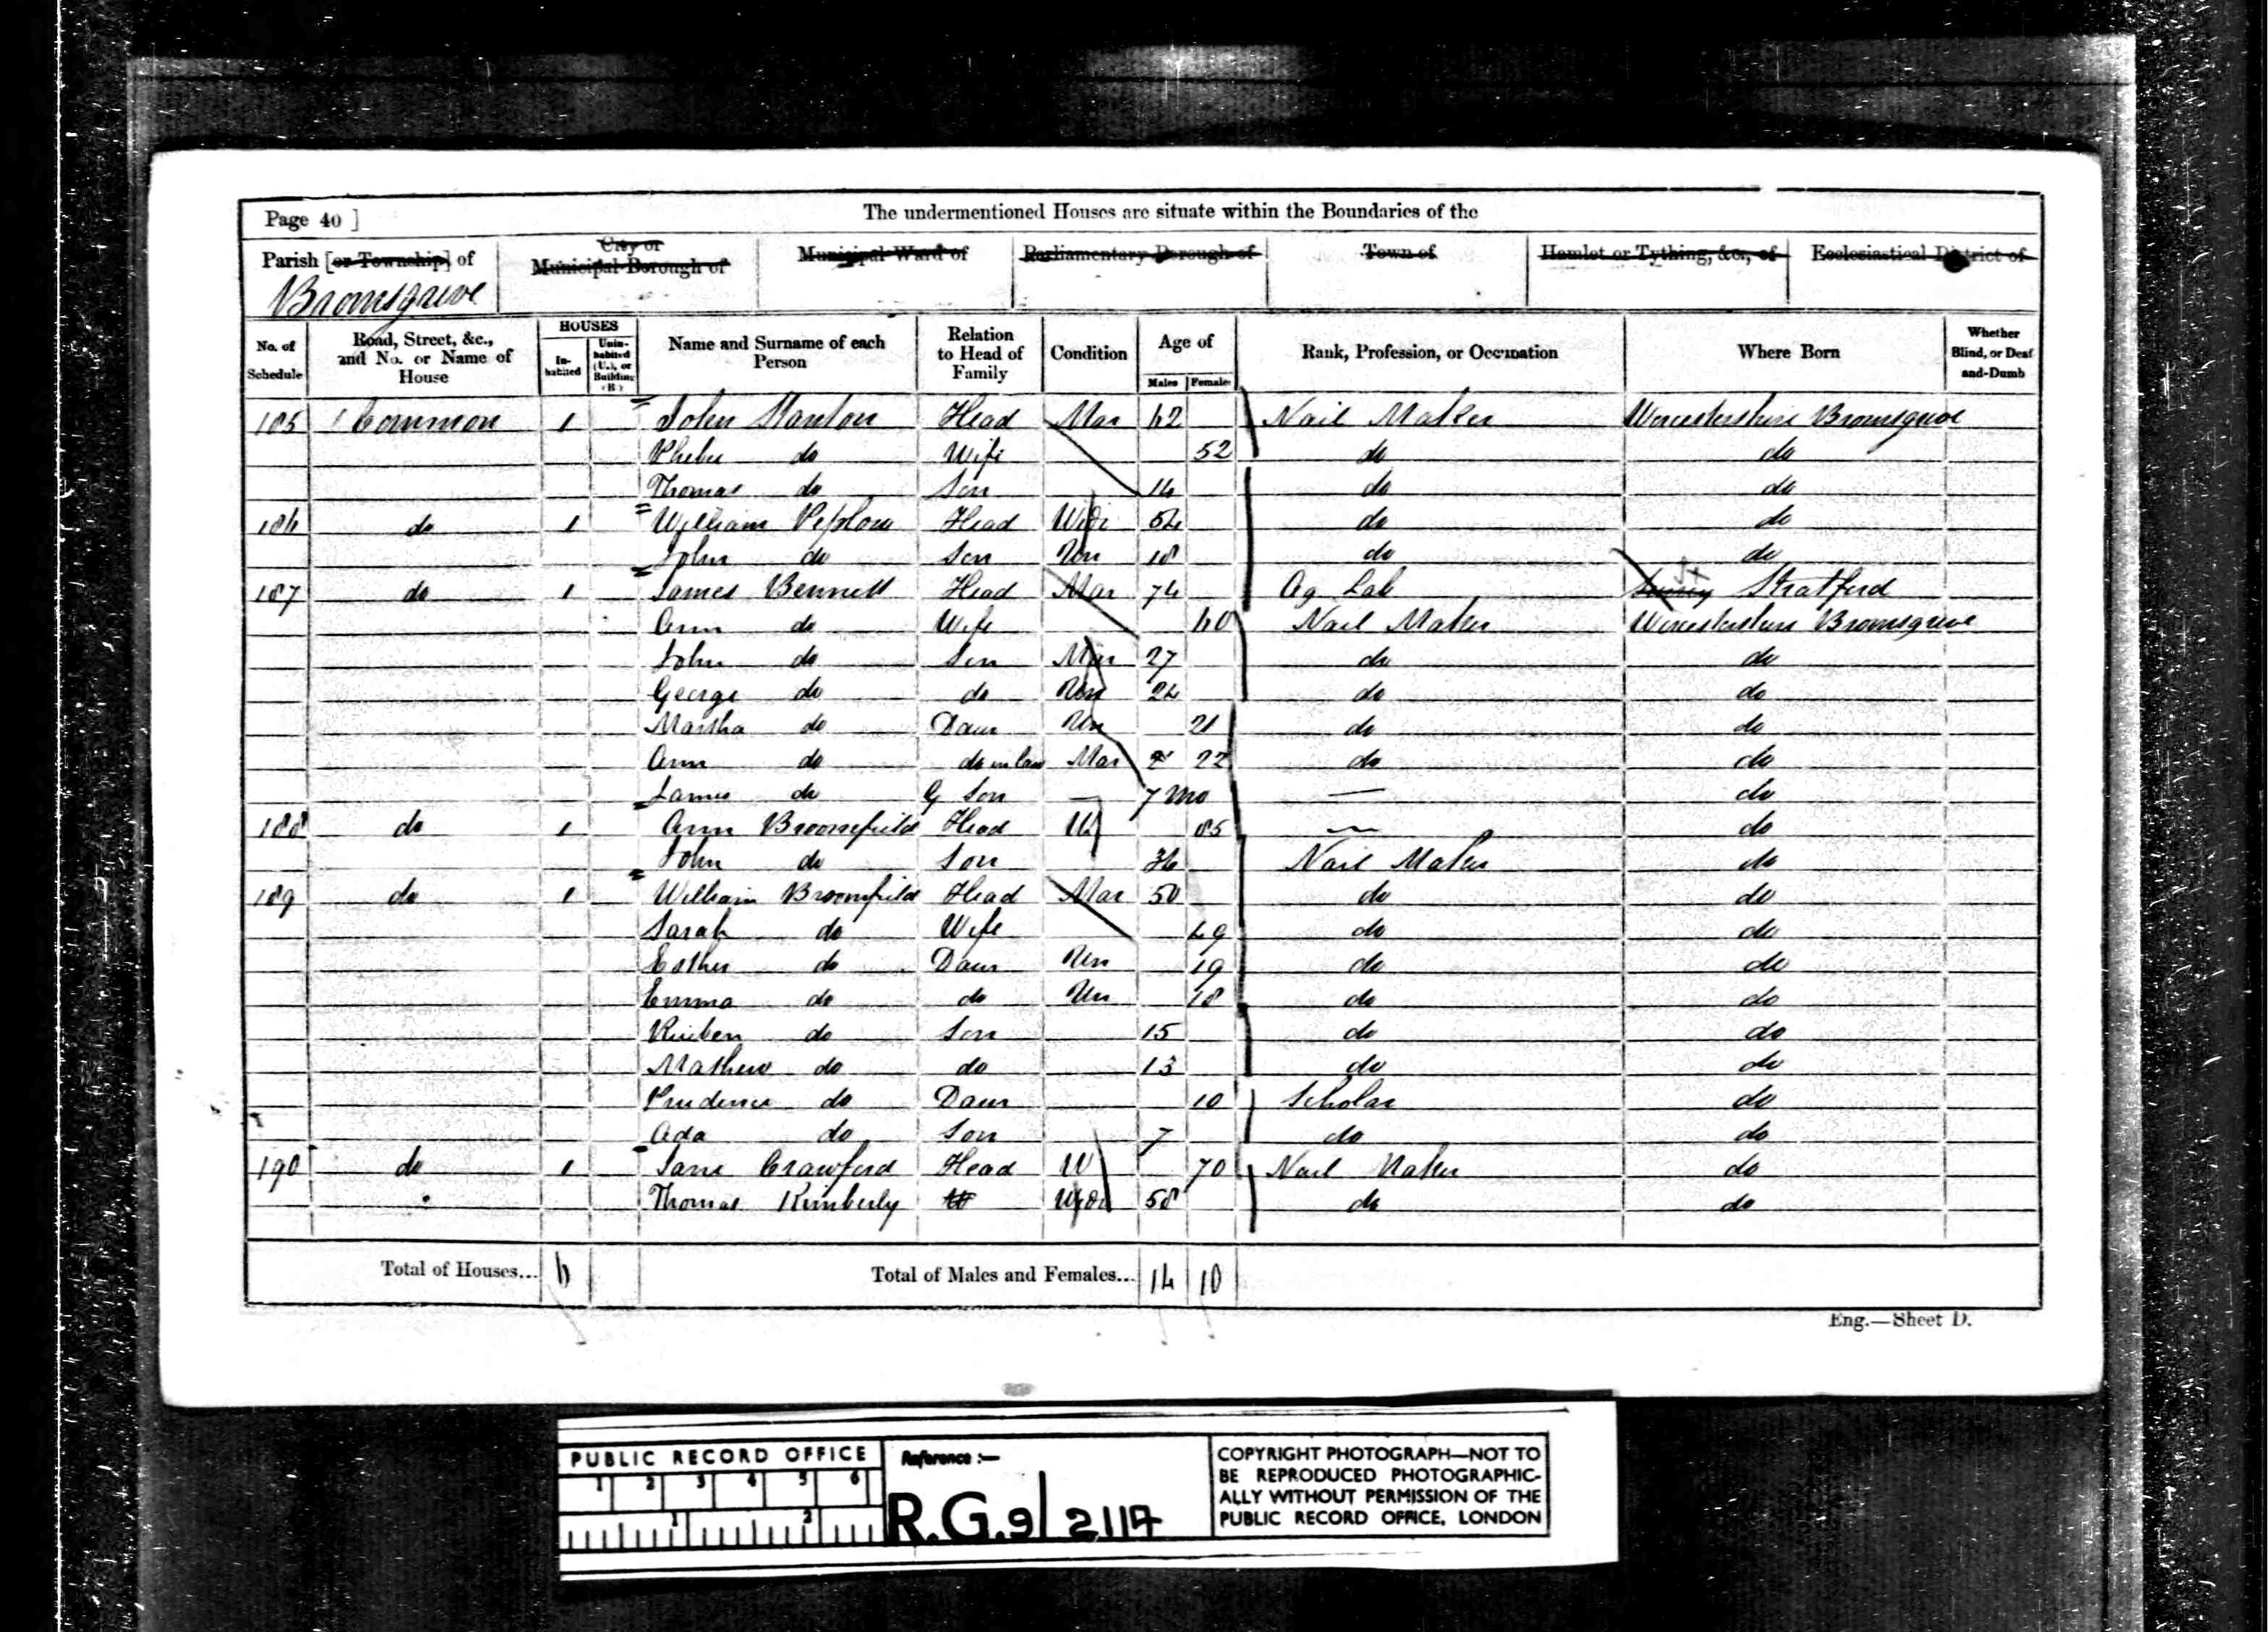 Page 40 ] The undermentioned Houses are situate within the Boundaries of the
Parish [or Township] of City or Municipal Borough of Municipal Ward of Parliamentary Borough of Town of Hamlet or Tything, &c., of Ecclesiastical District of
Bromsgrove
No. of Schedule Road, Street, &c., and No. or Name of House HOUSES Inhabited Uninhabited (U.), or Building (B.) Name and Surname of each Person Relation to Head of Family Condition Age of Males Females Rank, Profession, or Occupation Where Born Whether Blind, or Deaf-and-Dumb
185 Common 1 John Stanton Head Mar 62 Nail Maker Worcestershire Bromsgrove
Phebe do Wife 52 do do
Thomas do Son 14 do do
186 do 1 William Peplow Head Widr 54 do do
John do Son Un 18 do do
187 do 1 James Bennett Head Mar 74 Ag Lab Stratford
Ann do Wife 60 Nail Maker Worcestershire Bromsgrove
John do Son Mar 27 do do
George do do Un 24 do do
Martha do Daur Un 21 do do
Ann do do in law Mar 22 do do
James do G Son — 7 mo — do
188 do 1 Ann Broomfield Head W 85 — do
John do Son 36 Nail Maker do
189 do 1 William Broomfield Head Mar 50 do do
Sarah do Wife 49 do do
Esther do Daur Un 19 do do
Emma do do Un 18 do do
Reuben do Son 15 do do
Mathew do do 13 do do
Prudence do Daur 10 Scholar do
Ada do Son 7 do do
190 do 1 Jane Crawford Head W 70 Nail Maker do
Thomas Kimberly Widr 58 do do
Total of Houses... 6 Total of Males and Females... 14 10
Eng.—Sheet D.
PUBLIC RECORD OFFICE
1 2 3 4 5 6
1 2
Reference :—
R.G. 9 / 2117
COPYRIGHT PHOTOGRAPH—NOT TO
BE REPRODUCED PHOTOGRAPHIC-
ALLY WITHOUT PERMISSION OF THE
PUBLIC RECORD OFFICE, LONDON